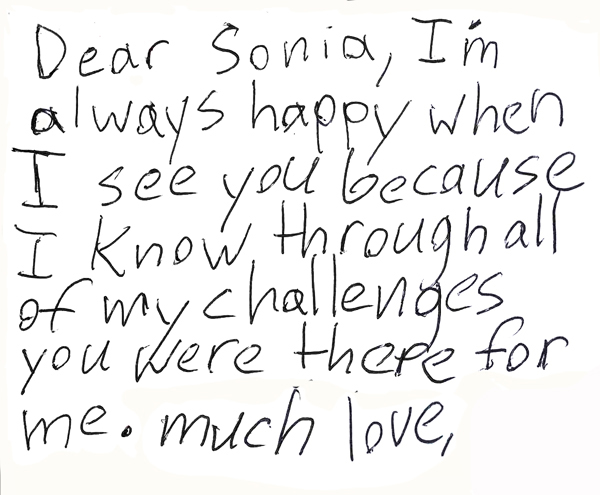 Dear Sonia, I'm
always happy when
I see you because
I know through all
of my challenges
you were there for
me. much love,